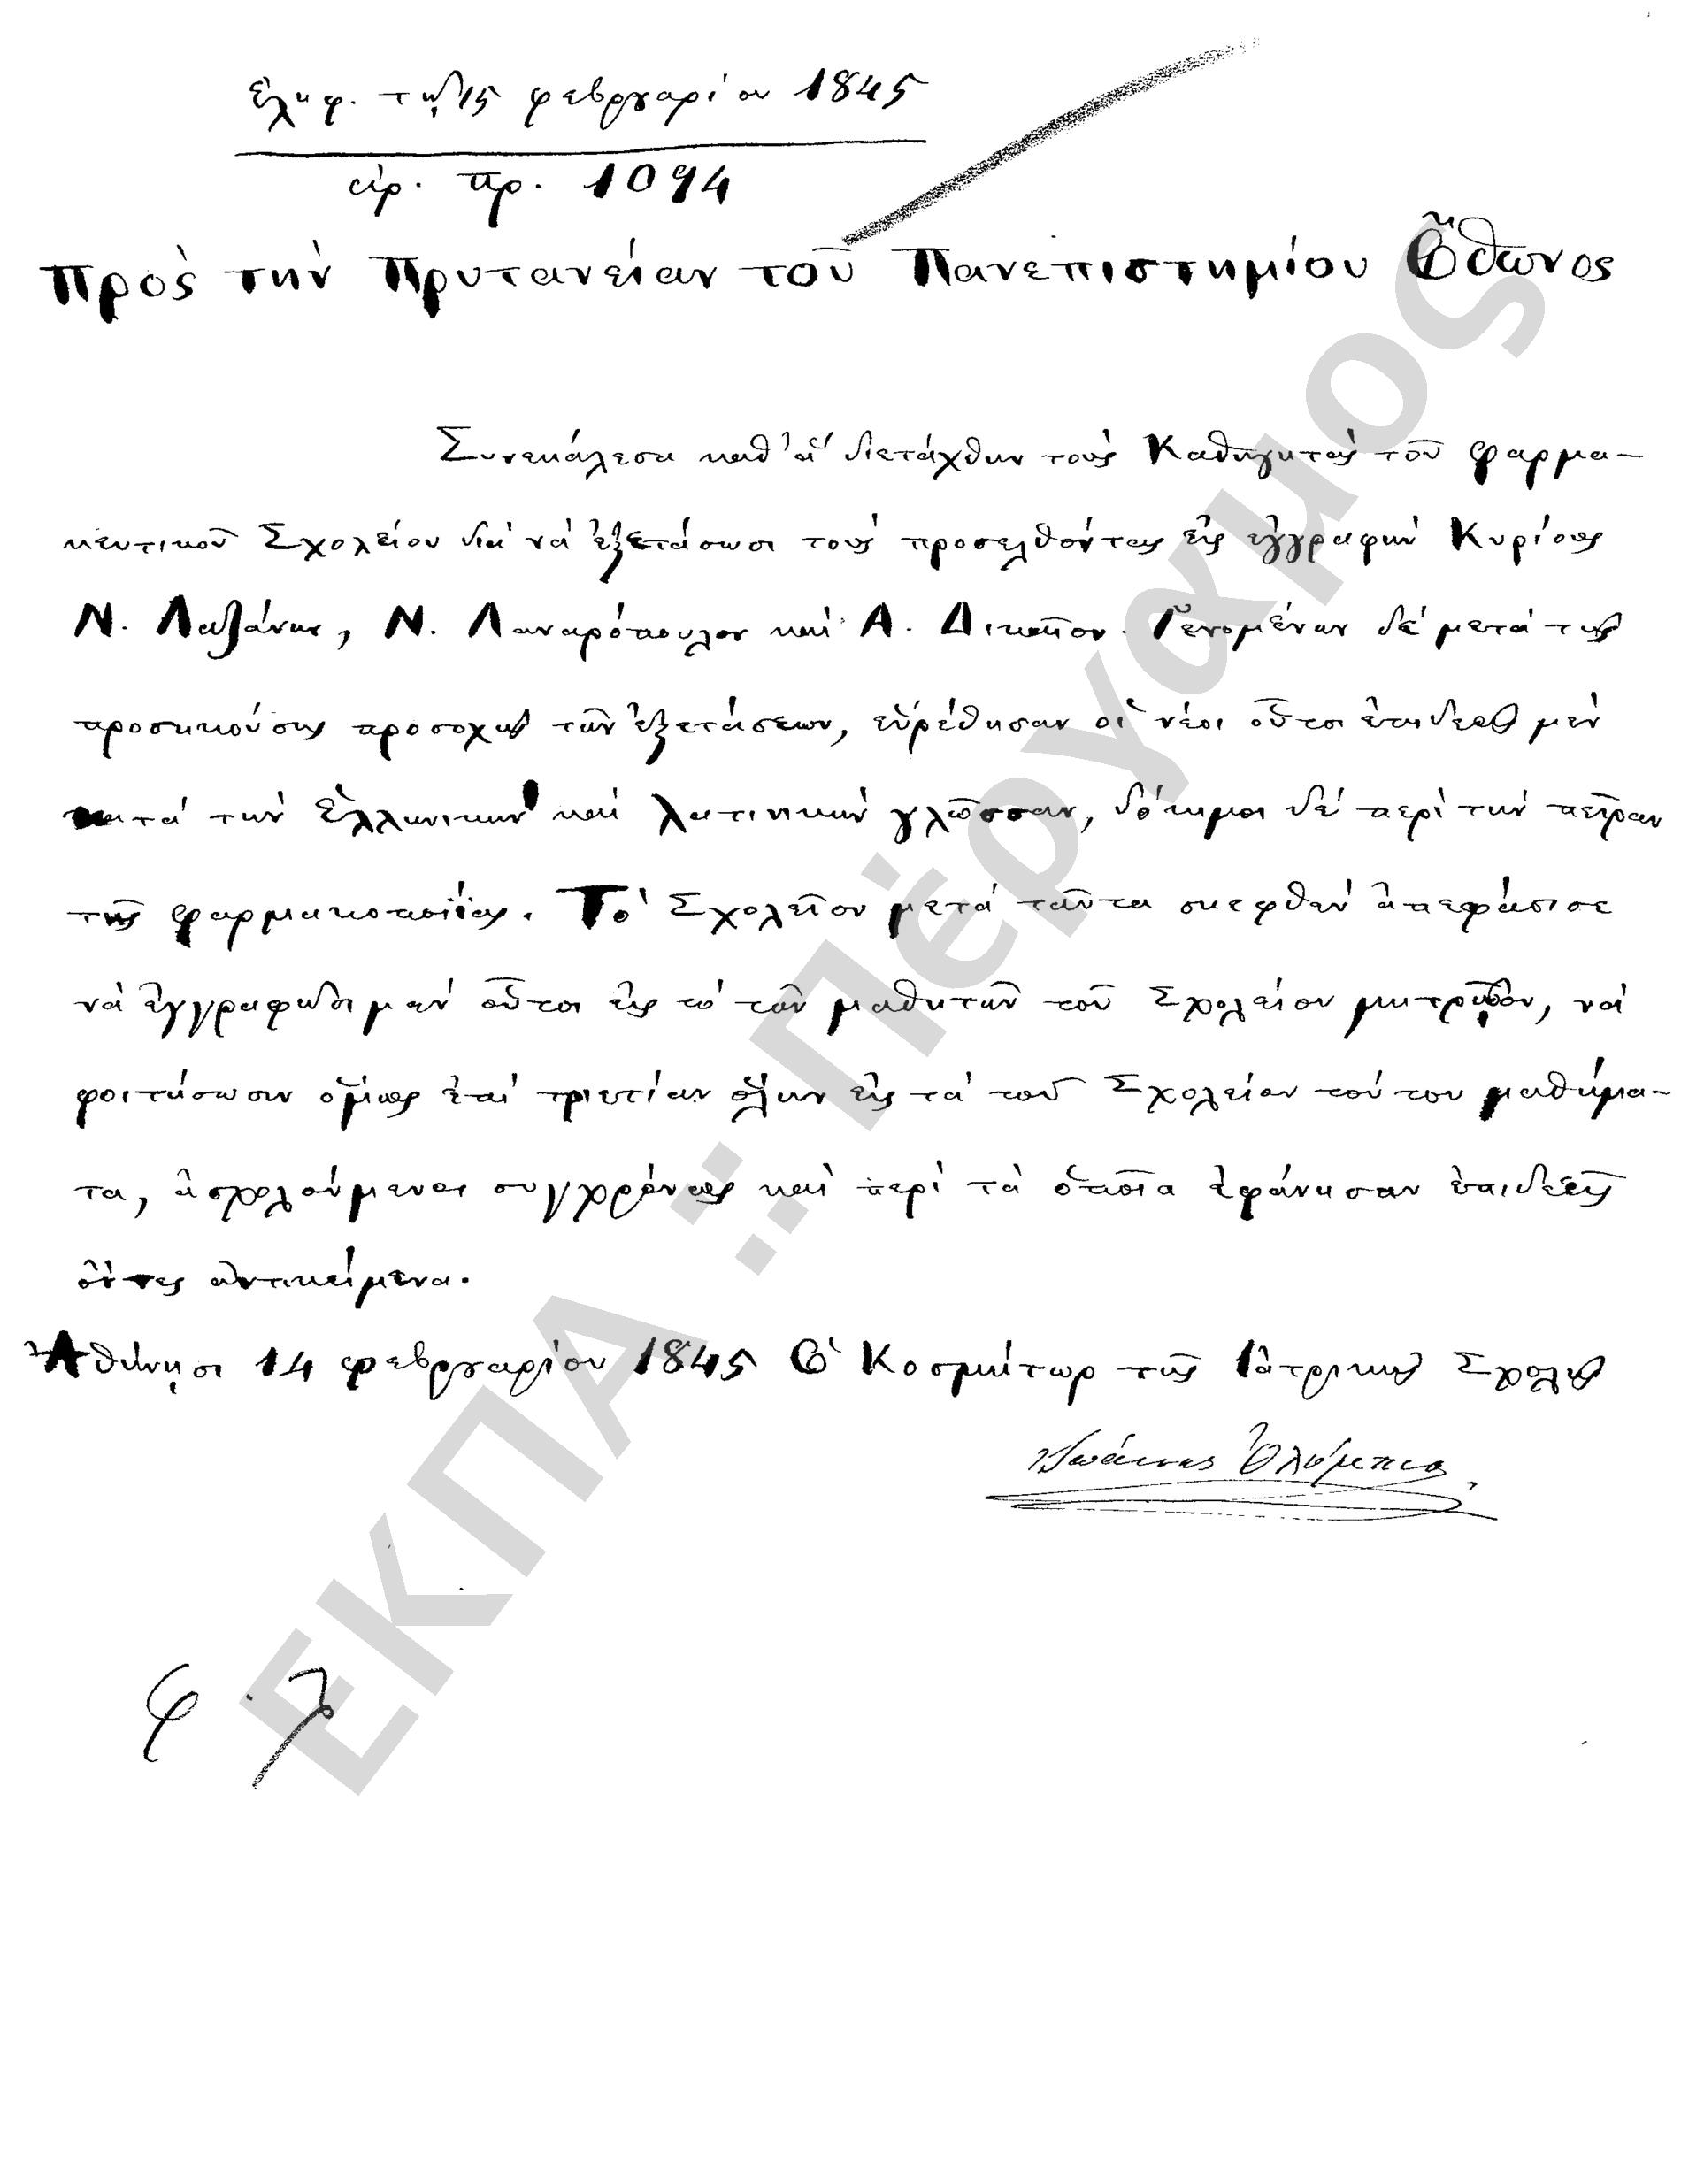 ἐλήφ. τῇ 15 φεβρουαρίου 1845
ἀρ. πρ. 1094
Πρὸς τὴν Πρυτανείαν τοῦ Πανεπιστημίου Ὄθωνος
Συνεκάλεσα καθ' ἃ διετάχθην τοὺς Καθηγητὰς τοῦ φαρμα-
κευτικοῦ Σχολείου διὰ νὰ ἐξετάσωσι τοὺς προσελθόντας εἰς ἐγγραφὴν Κυρίους
Ν. Λαναρόπουλον καὶ Α. Δικαῖον. Γενομένων δὲ μετὰ τῆς
προσηκούσης προσοχῆς τῶν ἐξετάσεων, εὑρέθησαν οἱ νέοι οὗτοι ἐπιδεεῖς μὲν
κατὰ τὴν ἑλληνικὴν καὶ λατινικὴν γλῶσσαν, δόκιμοι δὲ περὶ τὴν πεῖραν
τῆς φαρμακοποιΐας. Τὸ Σχολεῖον μετὰ ταῦτα σκεφθὲν ἀπεφάσισε
νὰ ἐγγραφῶσι μὲν οὗτοι εἰς τὸ τῶν μαθητῶν τοῦ Σχολείου μητρῷον, νὰ
φοιτήσωσιν ὅμως ἐπὶ τριετίαν ὅλην εἰς τὰ τοῦ Σχολείου τούτου μαθήμα-
τα, ἀσχολούμενοι συγχρόνως καὶ περὶ τὰ ὁποῖα ἐφάνησαν ἐπιδεεῖς
ὄντες ἀντικείμενα.
Ἀθήνησι 14 φεβρουαρίου 1845 Ὁ Κοσμήτωρ τῆς Ἰατρικῆς Σχολῆς
Ἰωάννης Ὀλύμπιος
ΕΚΠΑ :: Πέργαμος